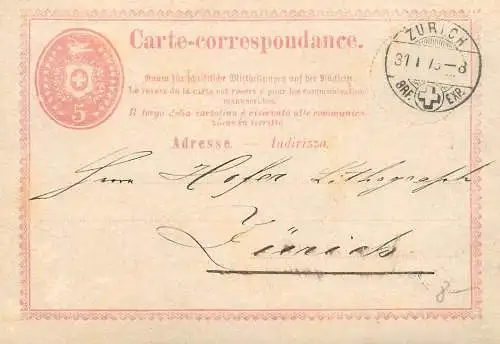 Carte-correspondance.
ZÜRICH
31 I 73-8
BRF. EXP.
5
Raum für schriftliche Mittheilungen auf der Rückseite.
Le revers de la carte est réservé pour les communications
manuscrites.
Il tergo della cartolina è riservato alle communica-
zioni in iscritto.
Adresse. — Indirizzo.
Herrn Hofer Lithograph
Zürich
8—